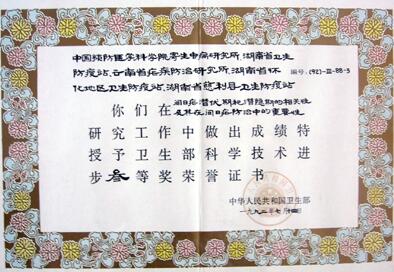 中国预防医学科学院寄生虫病研究所,湖南省卫生
防疫站,云南省疟疾防治研究所,湖南省怀
化地区卫生防疫站,湖南省慈利县卫生防疫站
编号:(92)-Ⅲ-88-3
你们在间日疟潜伏期和复燃期的相关性
及其在间日疟防治中的重要性
研究工作中做出成绩特
授予卫生部科学技术进
步叁等奖荣誉证书
中华人民共和国卫生部
一九九二年七月